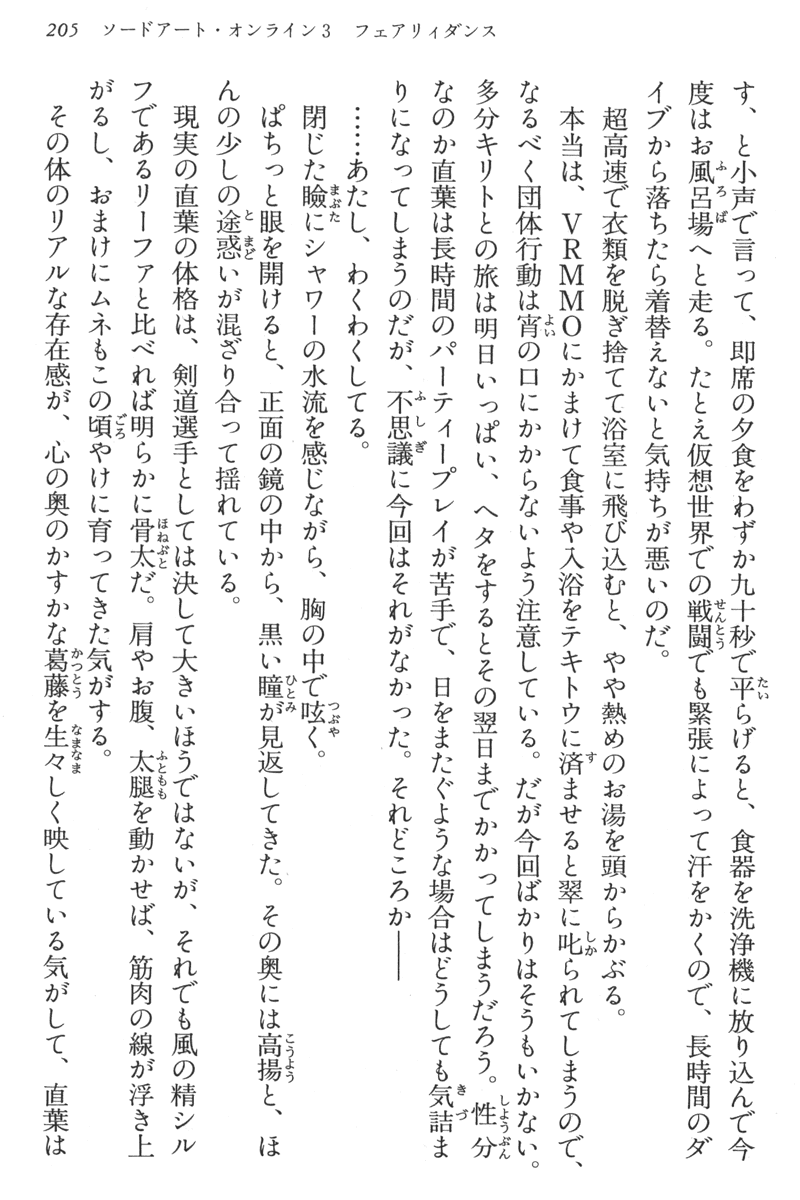 205 ソードアート・オンライン3 フェアリィダンス
す、と小声で言って、即席の夕食をわずか九十秒で平らげると、食器を洗浄機に放り込んで今
度はお風呂場へと走る。たとえ仮想世界での戦闘でも緊張によって汗をかくので、長時間のダ
イブから落ちたら着替えないと気持ちが悪いのだ。
超高速で衣類を脱ぎ捨てて浴室に飛び込むと、やや熱めのお湯を頭からかぶる。
本当は、VRMMOにかまけて食事や入浴をテキトウに済ませると翠に叱られてしまうので、
なるべく団体行動は宵の口にかからないよう注意している。だが今回ばかりはそうもいかない。
多分キリトとの旅は明日いっぱい、ヘタをするとその翌日までかかってしまうだろう。性分
なのか直葉は長時間のパーティープレイが苦手で、日をまたぐような場合はどうしても気詰ま
りになってしまうのだが、不思議に今回はそれがなかった。それどころか――
……あたし、わくわくしてる。
閉じた瞼にシャワーの水流を感じながら、胸の中で呟く。
ぱちっと眼を開けると、正面の鏡の中から、黒い瞳が見返してきた。その奥には高揚と、ほ
んの少しの途惑いが混ざり合って揺れている。
現実の直葉の体格は、剣道選手としては決して大きいほうではないが、それでも風の精シル
フであるリーファと比べれば明らかに骨太だ。肩やお腹、太腿を動かせば、筋肉の線が浮き上
がるし、おまけにムネもこの頃やけに育ってきた気がする。
その体のリアルな存在感が、心の奥のかすかな葛藤を生々しく映している気がして、直葉は